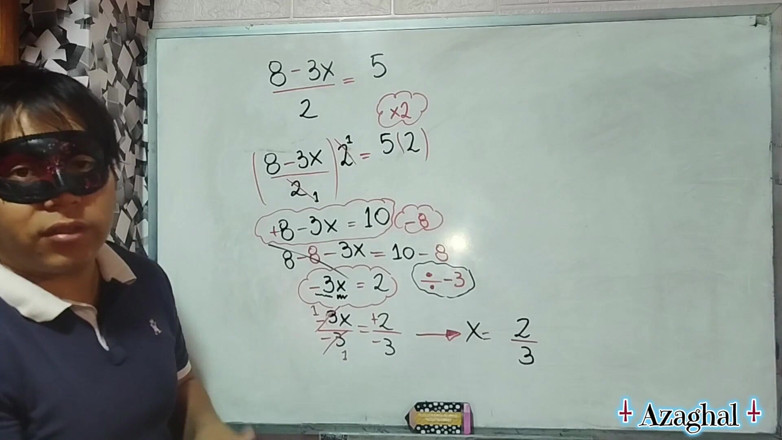 8 - 3x / 2 = 5
×2
(8 - 3x / 2 1) 2 1 = 5(2)
+8 - 3x = 10 -8
8 - 8 - 3x = 10 - 8
-3x = 2 ÷ -3
1 -3x / -3 1 = +2 / -3 → x = 2 / 3
Azaghal